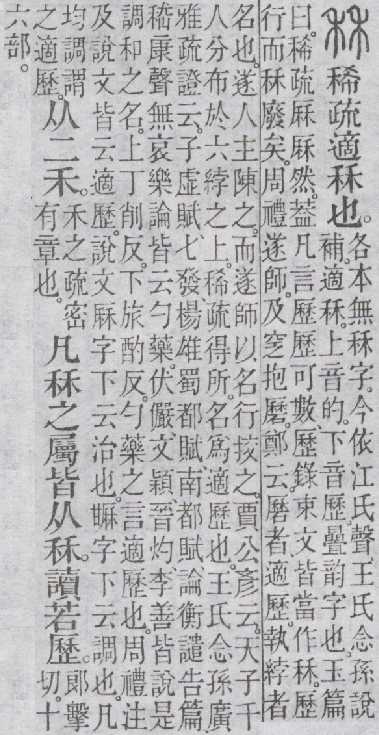 秝稀疏適秝也。
各本無秝字。今依江氏聲、王氏念孫說
補。適秝、上音的。下音歷。疊韵字也。玉篇
曰。稀疏厤厤然。葢凡言歷歷可數、歷錄束文皆當作秝。歷
行而秝廢矣。周禮遂師。及窆抱磨。鄭云。磨者適歷。執綍者
名也。遂人主陳之。而遂師以名行挍之。賈公彥云。天子千
人分布於六綍之上。稀疏得所。名爲適歷也。王氏念孫廣
雅疏證云。子虛賦、七發、楊雄蜀都賦、南都賦、論衡譴告篇、
嵇康聲無哀樂論皆云勺藥。伏儼、文穎、晉灼、李善皆說是
調和之名。上丁削反。下旅酌反。勺藥之言適歷也。周禮注
及說文皆云適歷。說文厤字下云治也。字下云調也。凡
均調謂
之適歷。
从二禾。
禾之疏密
有章也。
凡秝之屬皆从秝。讀若歷。
郎擊
切。十
六部。